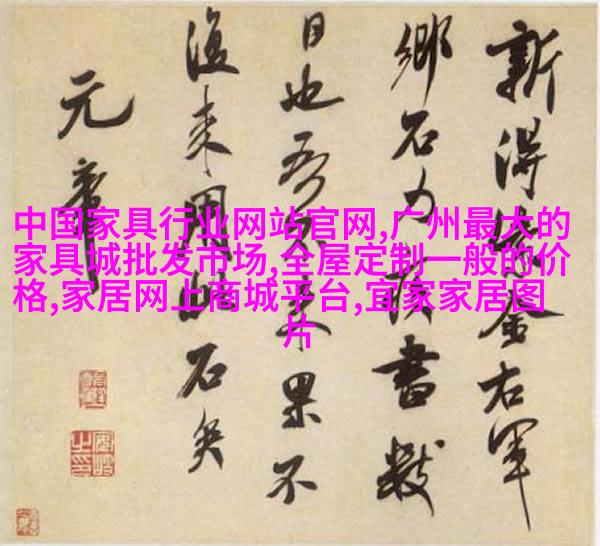 新得紫金右軍
鄉石力疾書數
日也吾不来果不
復来用此石矣
元章
中国家具行业网站官网,广州最大的
家具城批发市场,全屋定制一般的价
格,家居网上商城平台,宜家家居图
片